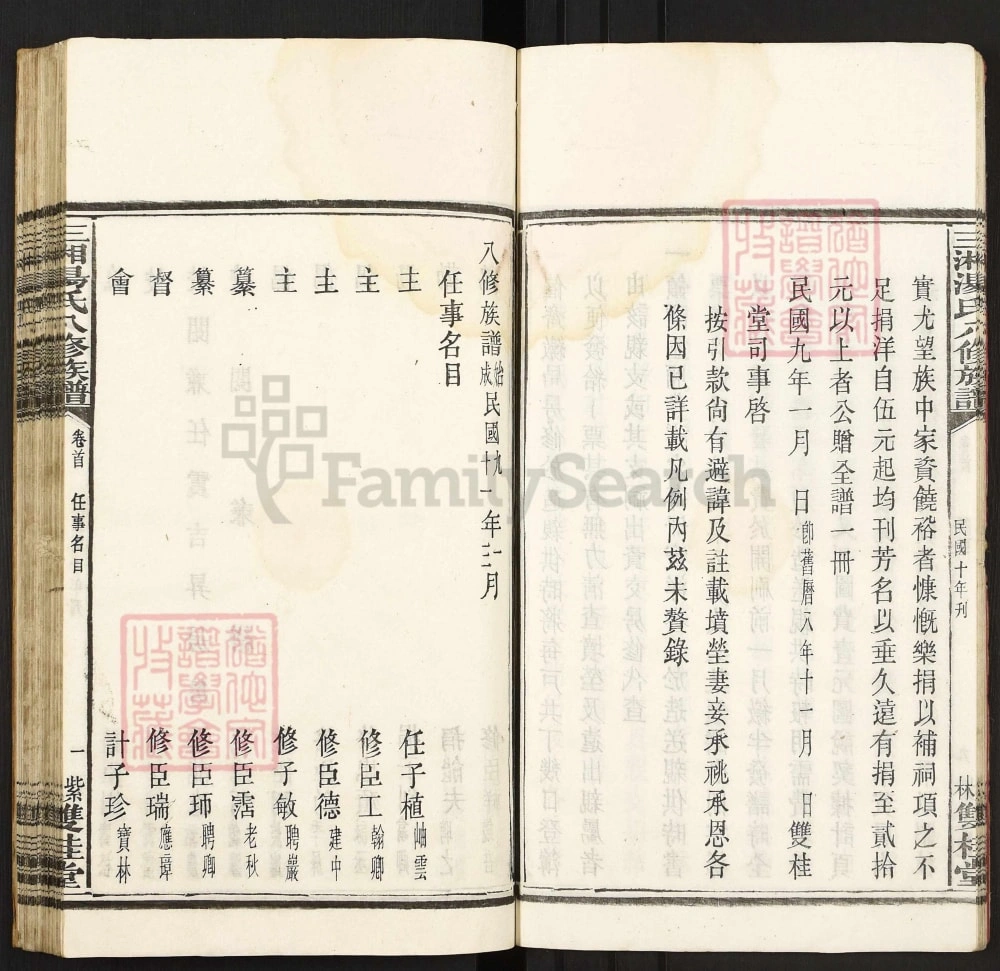 三湘湯氏八修族譜
民國十年刊
林雙桂堂
實尤望族中家資饒裕者慷慨樂捐以補祠項之不
足捐洋自伍元起均刊芳名以垂久遠有捐至貳拾
元以上者公贈全譜一冊
民國九年一月 日卽舊曆八年十一月 日雙桂
堂司事啓
按引款尙有避諱及註載墳塋妻妾承祧承恩各
條因已詳載凡例內茲未贅錄
八修族譜始成民國九十一年一三月
任事名目
主 任子植岫雲
主 修臣工翰卿
主 修臣德建中
主 修子敏聘巖
纂 修臣霑老秋
纂 修臣師聘卿
督 修臣瑞應璋
會 計子珍寶林
三湘湯氏八修族譜
卷首 任事名目
一 紫雙桂堂
FamilySearch